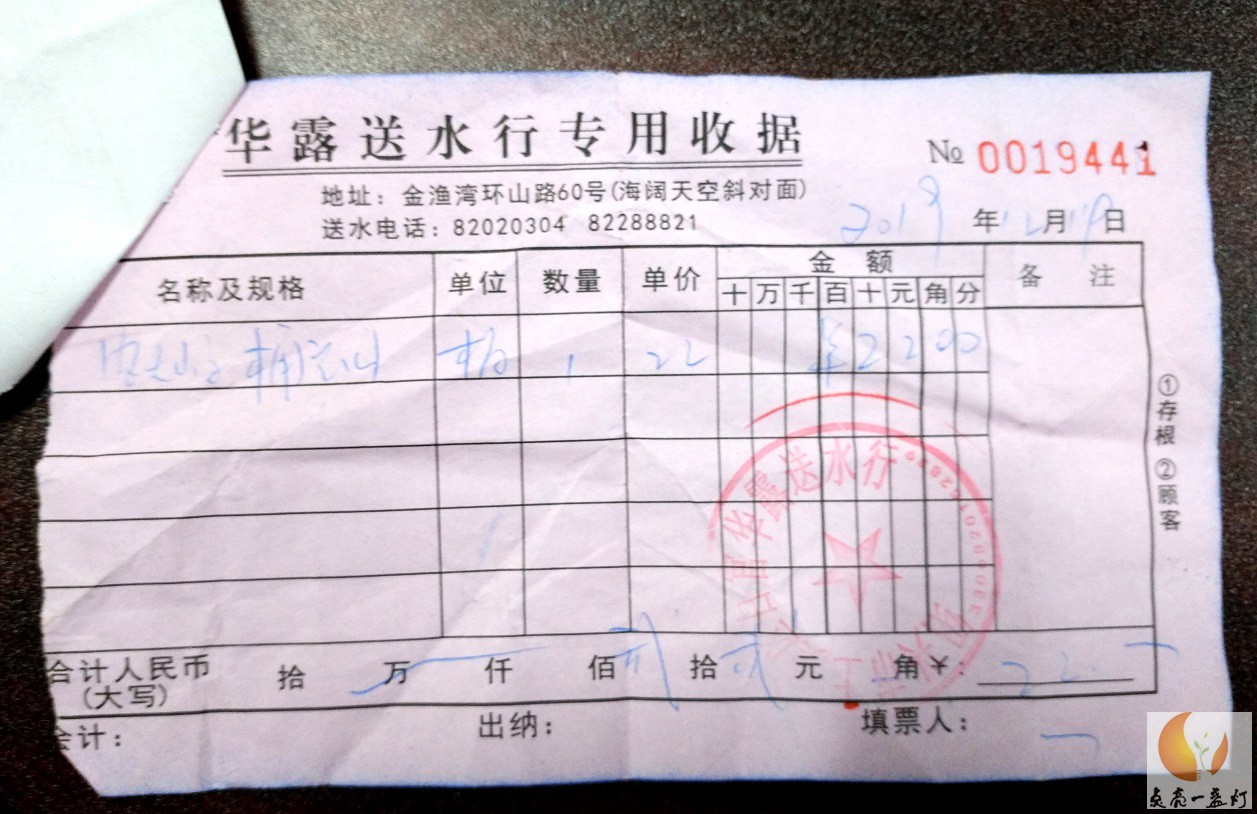 华露送水行专用收据
№ 0019441
地址：金渔湾环山路60号(海阔天空斜对面)
送水电话：82020304 82288821
2019年12月19日
名称及规格 单位 数量 单价 金额 备注
十 万 千 百 十 元 角 分
1 22 ¥2200
①存根 ②顾客
华露送水行
合计人民币 拾 万 仟 佰 贰 拾 贰 元 角 ¥: 22.
(大写)
会计： 出纳： 填票人：
点亮一盏灯